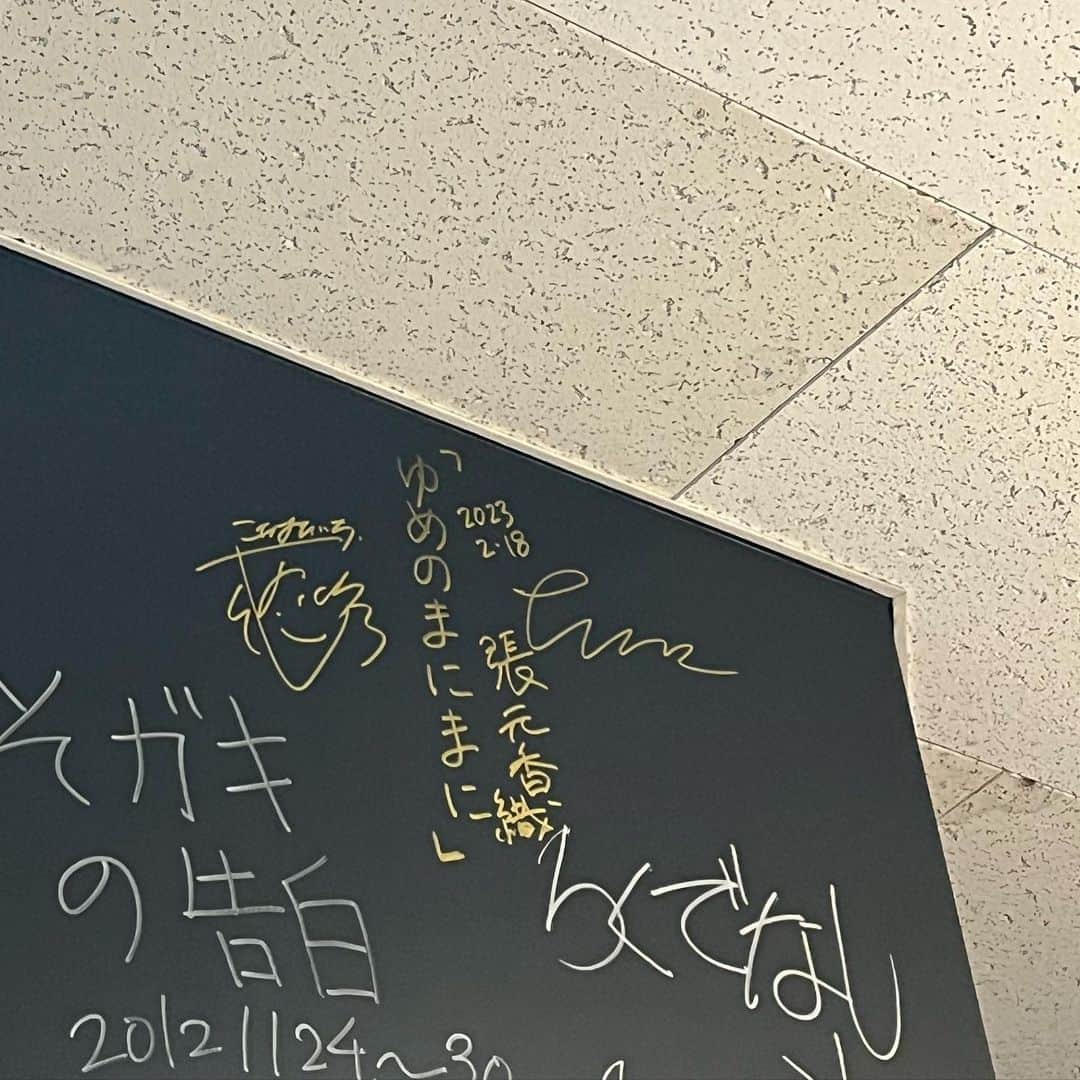 「ゆめのまにまに」
2023
2.18
張元香織
そガキ
の告白
2012 11 24〜30
ろくでなし